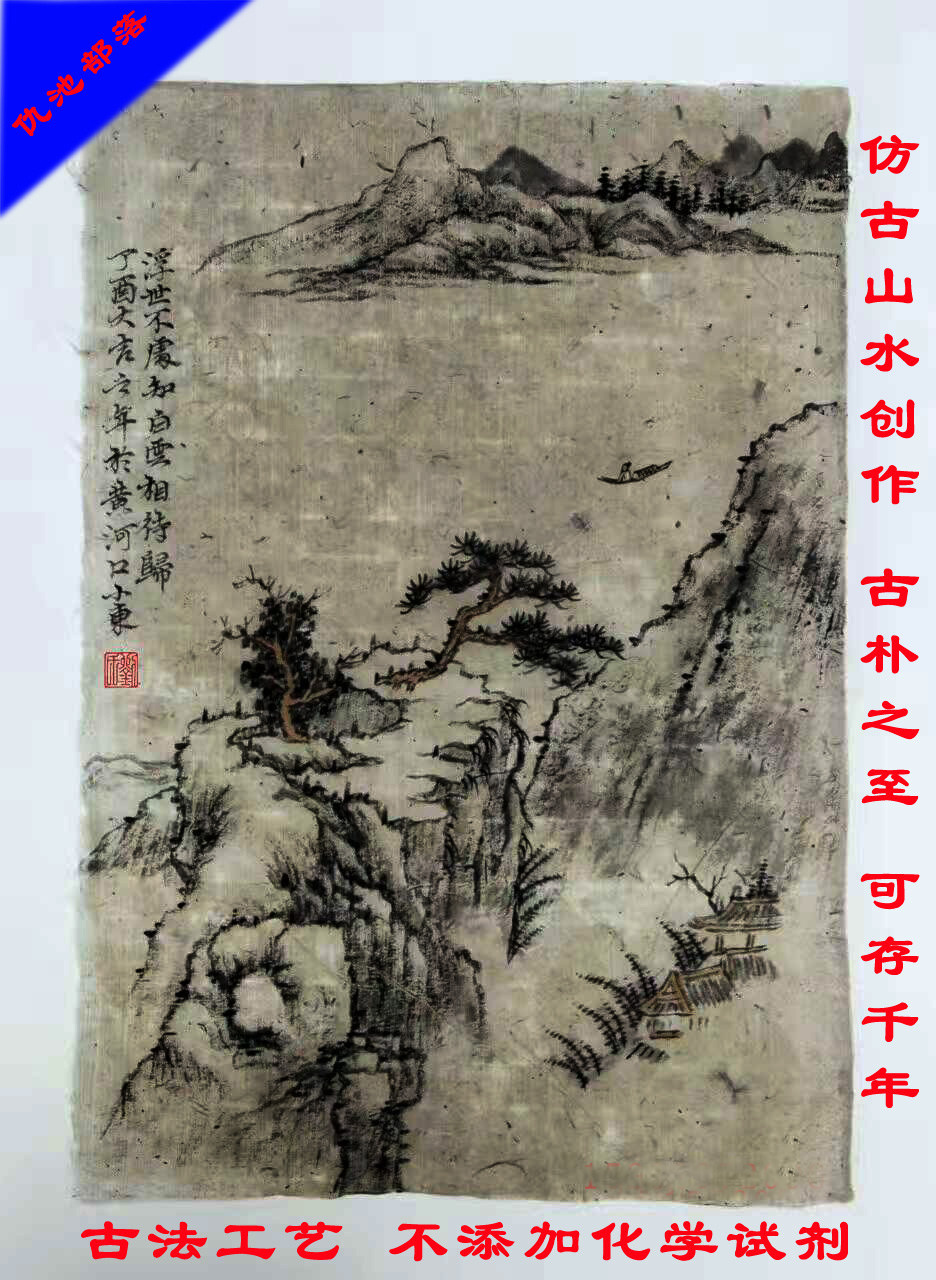 仇池部落
仿古山水创作 古朴之至 可存千年
浮世不處知白雲相待歸
丁酉大吉之年於黄河口小東
古法工艺 不添加化学试剂